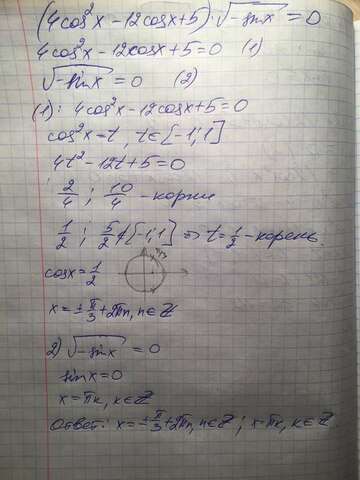 (4cos²x - 12cosx + 5) · √(-sinx) = 0
4cos²x - 12cosx + 5 = 0 (1)
√(-sinx) = 0 (2)
(1): 4cos²x - 12cosx + 5 = 0
cos²x = t, t ∈ [-1; 1]
4t² - 12t + 5 = 0
2/4 ; 10/4 - корни
1/2 ; 5/2 ∉ [-1; 1] => t = 1/2 - корень.
cosx = 1/2
x = ± π/3 + 2πn, n ∈ Z
2) √(-sinx) = 0
sinx = 0
x = πk, k ∈ Z
Ответ: x = ± π/3 + 2πn, n ∈ Z ; x = πk, k ∈ Z